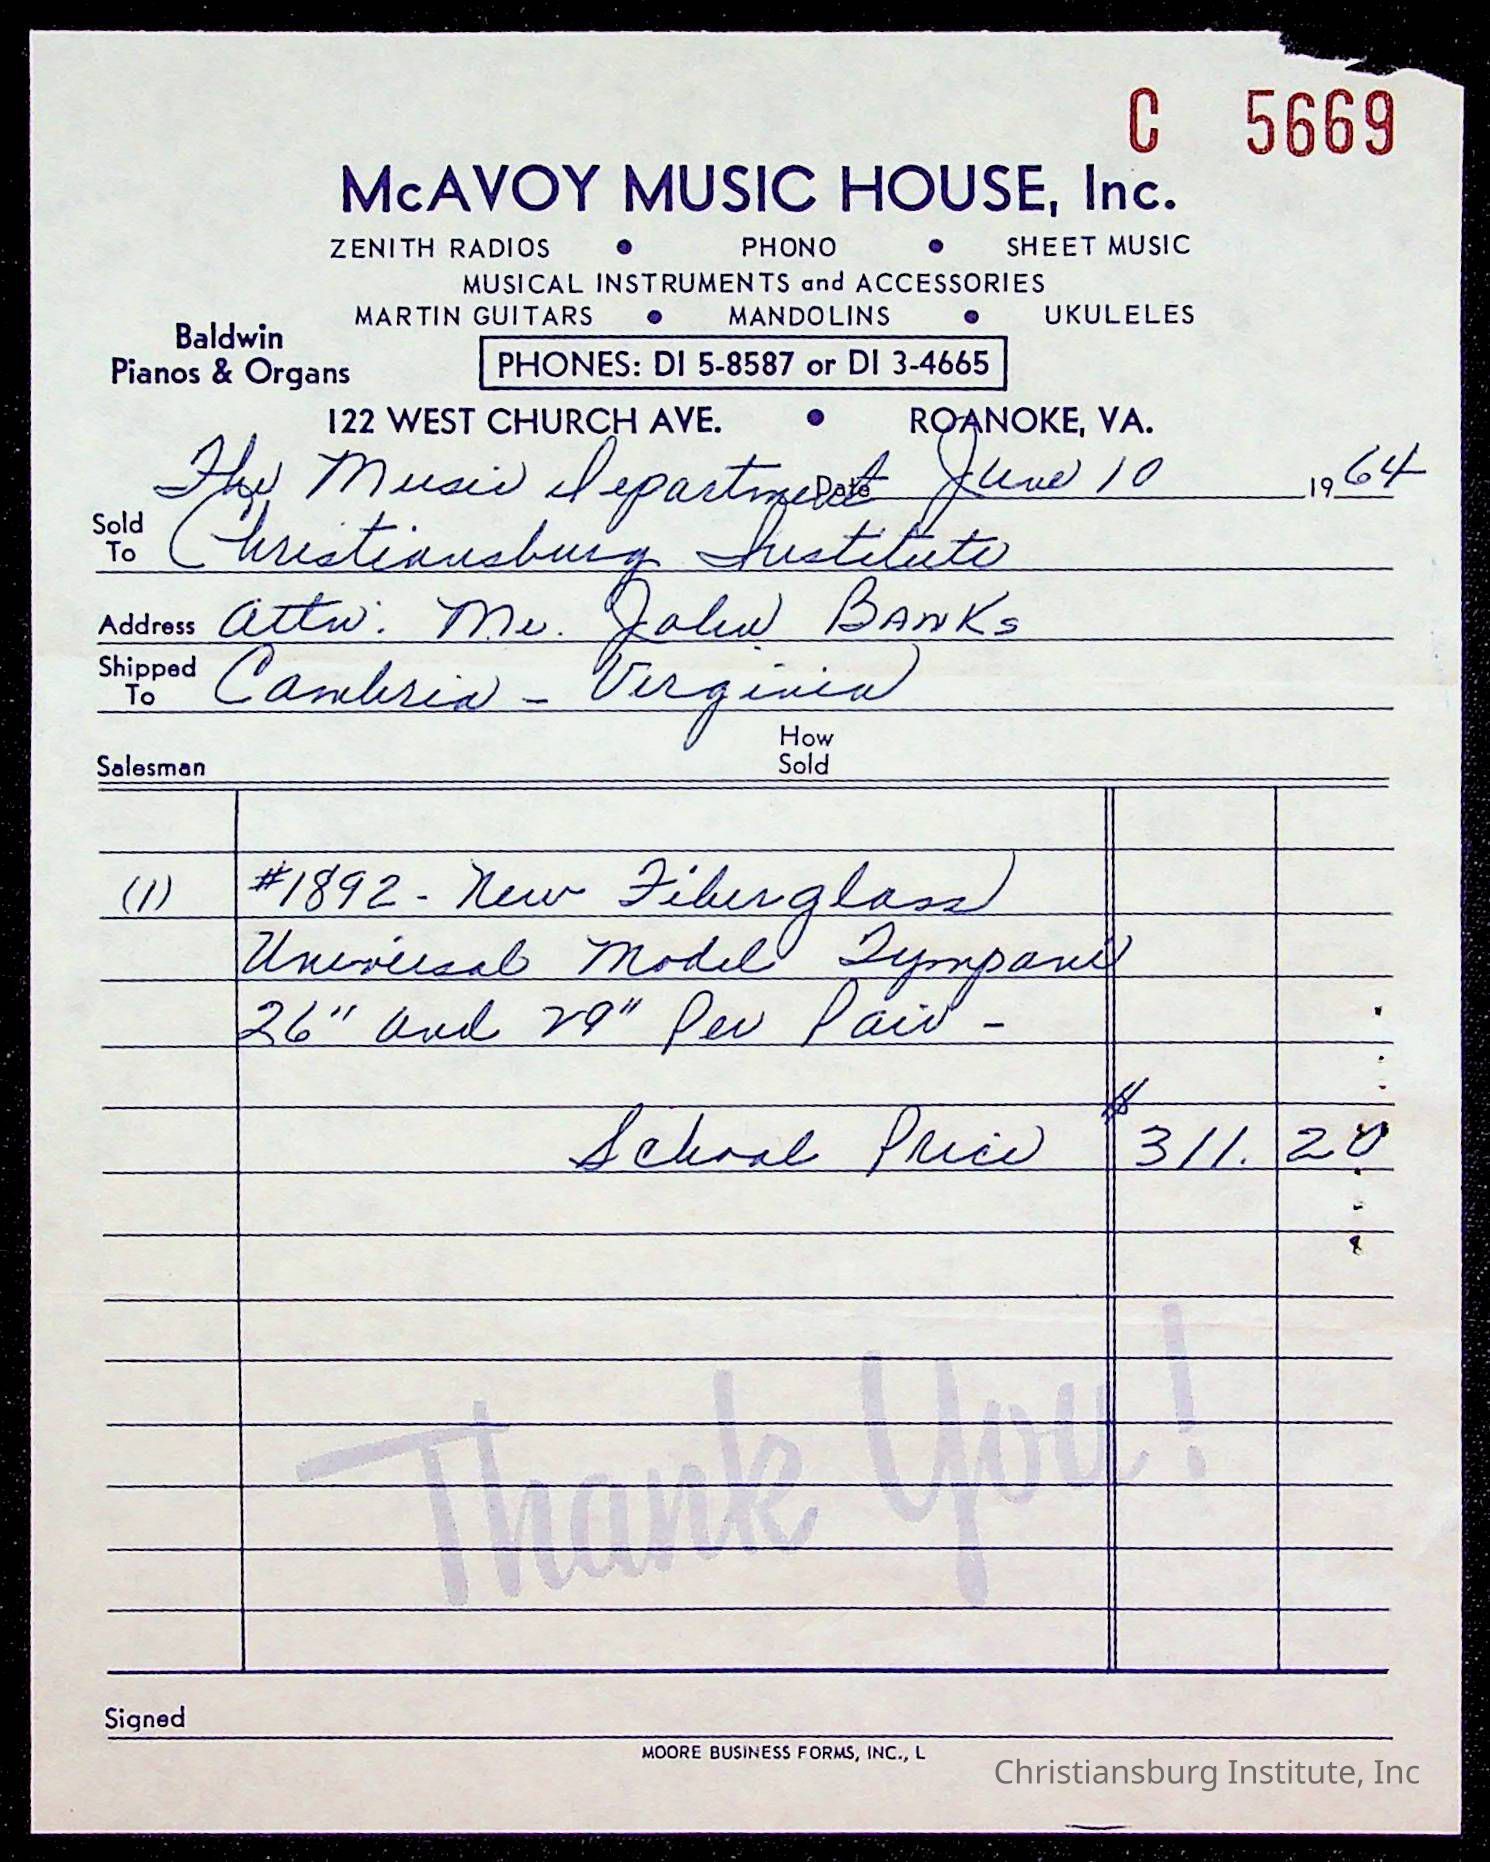 C 5669
McAVOY MUSIC HOUSE, Inc.
ZENITH RADIOS • PHONO • SHEET MUSIC
MUSICAL INSTRUMENTS and ACCESSORIES
MARTIN GUITARS • MANDOLINS • UKULELES
Baldwin
Pianos & Organs
PHONES: DI 5-8587 or DI 3-4665
122 WEST CHURCH AVE. • ROANOKE, VA.
The Music Department Date June 10 1964
Sold To Christiansburg Institute
Address Attn: Mr. John Banks
Shipped To Cambria - Virginia
Salesman How Sold
(1) #1892 - New Fiberglass
Universal Model Tympani
26" and 29" Per Pair -
School Price $311.20
Thank You!
Signed
MOORE BUSINESS FORMS, INC., L
Christiansburg Institute, Inc